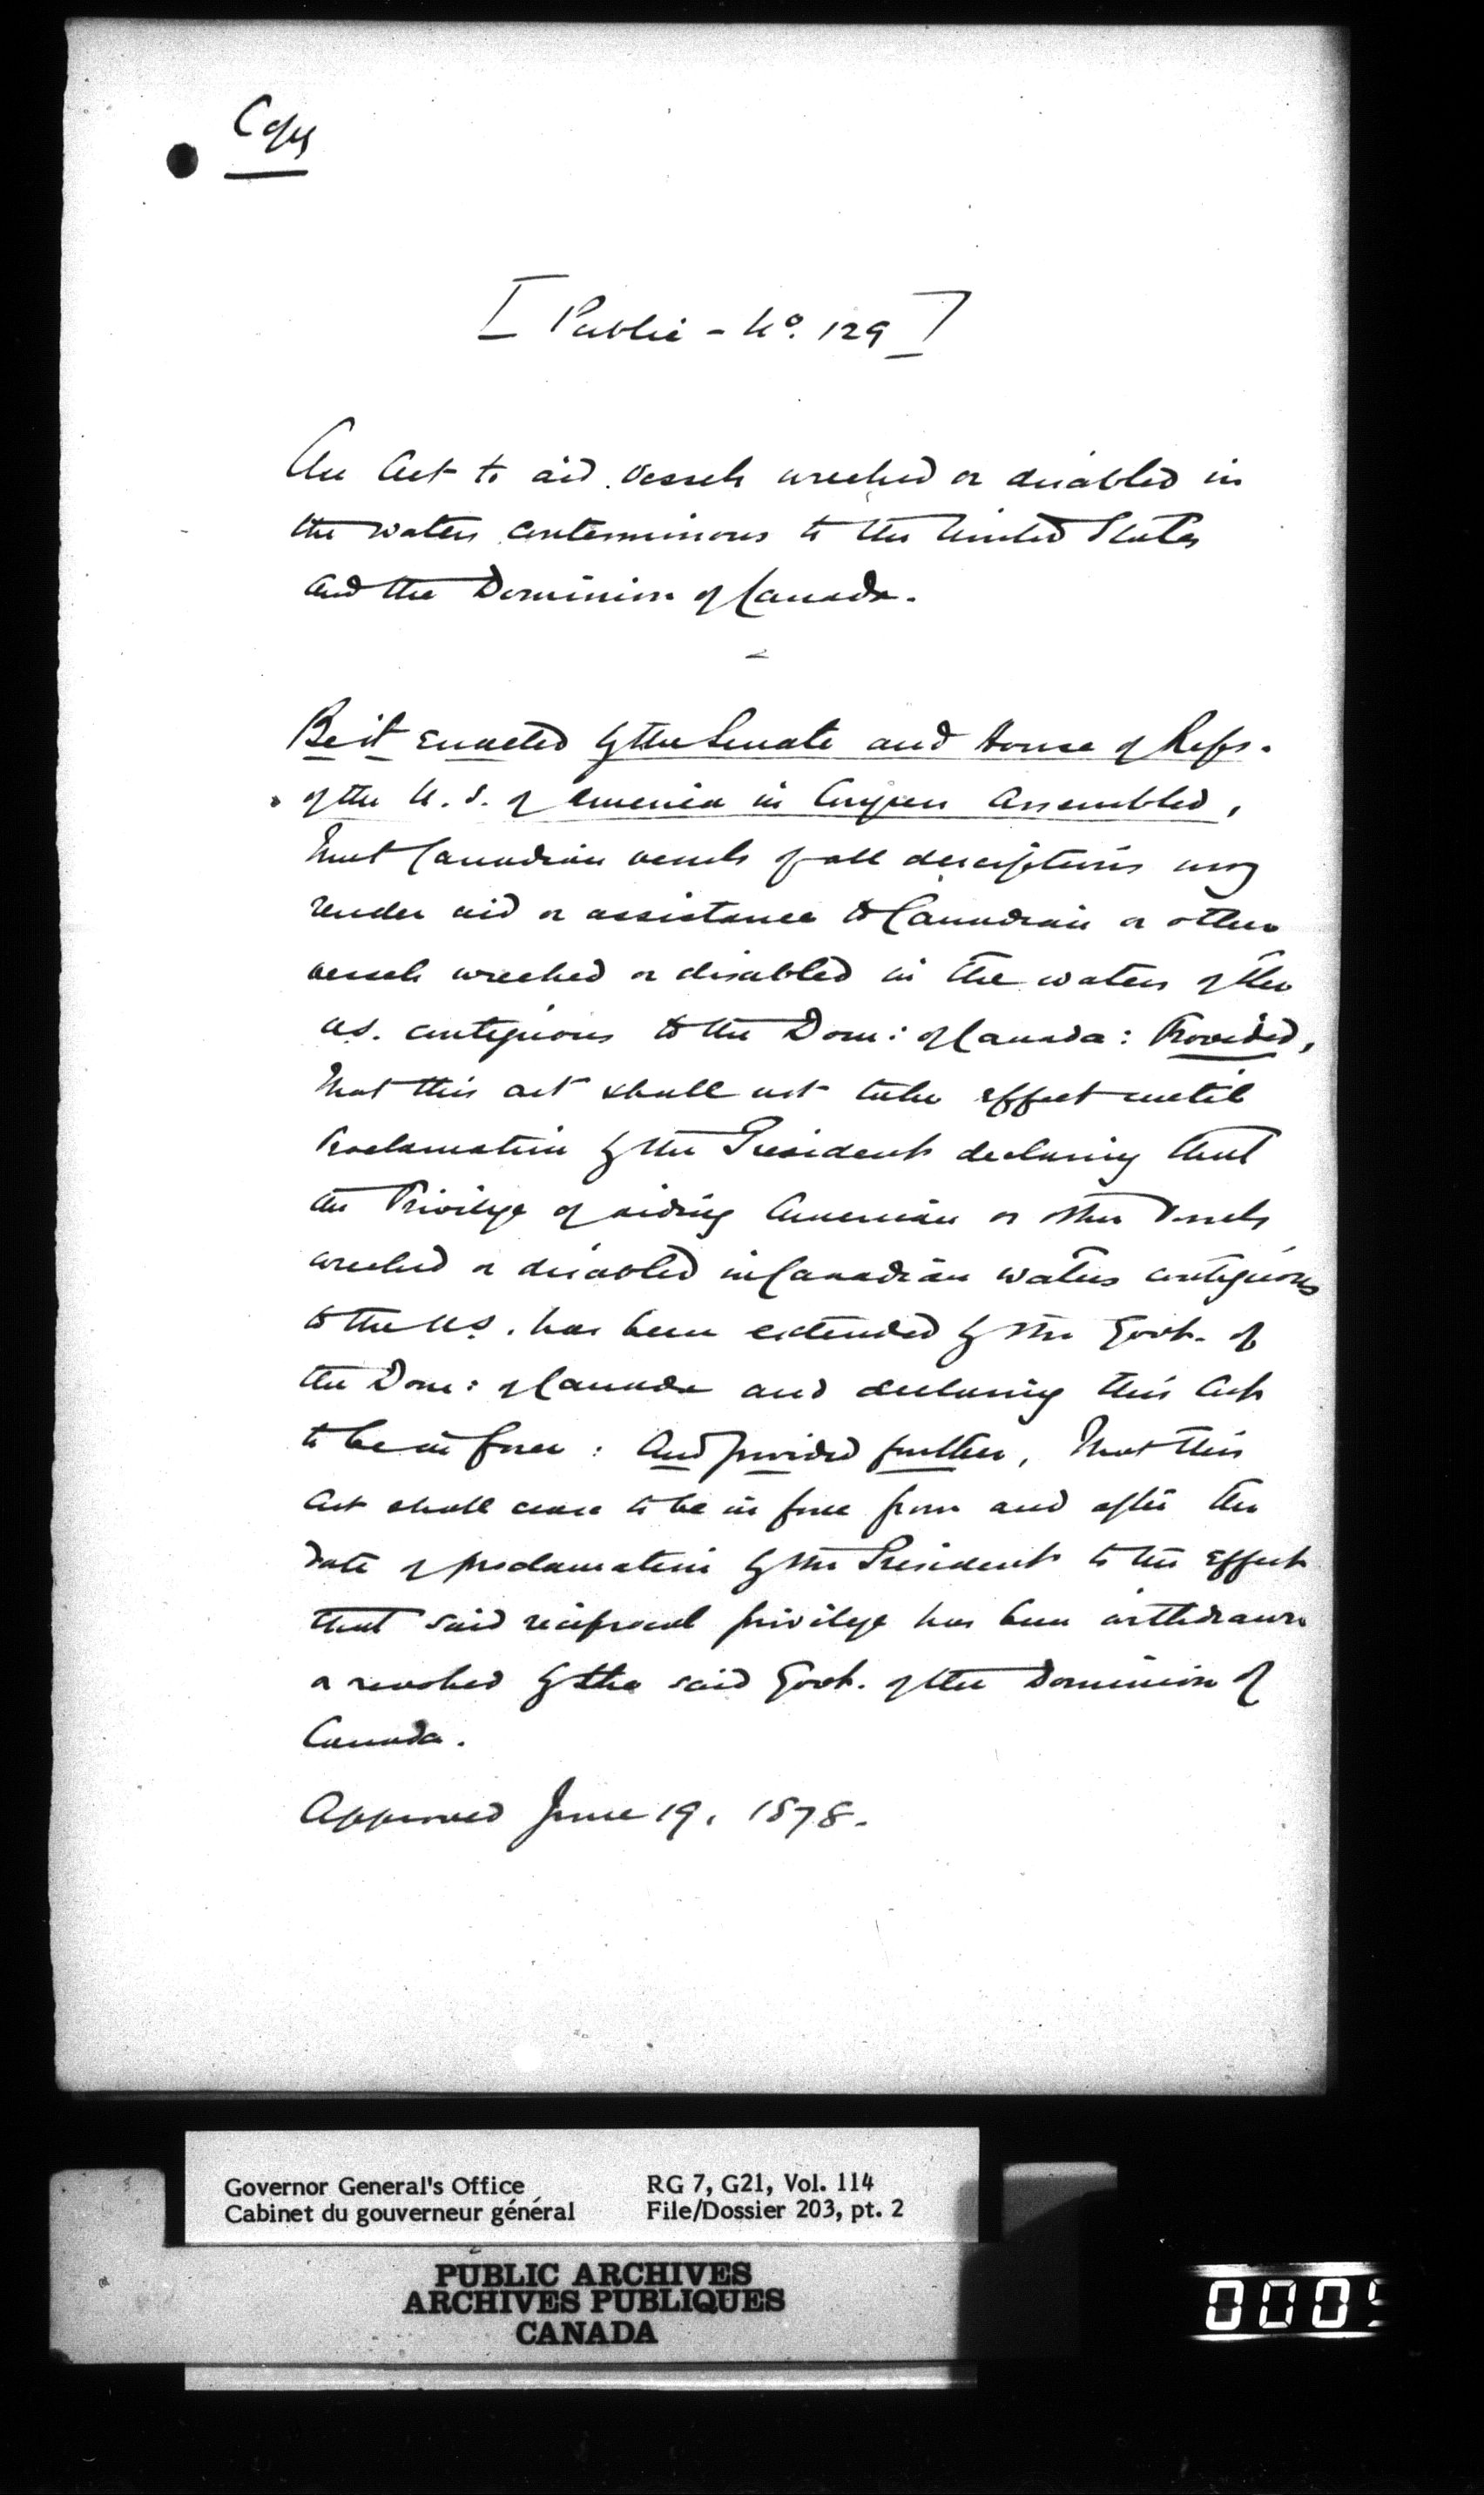 Copy
[Public - No. 129]
An Act to aid vessels wrecked or disabled in
the waters conterminous to the United States
and the Dominion of Canada.
Be it enacted by the Senate and House of Reps.
of the U. S. of America in Congress assembled,
That Canadian vessels of all descriptions may
render aid or assistance to Canadian or other
vessels wrecked or disabled in the waters of the
U.S. contiguous to the Dom: of Canada: Provided,
That this act shall not take effect until
Proclamation by the President declaring that
the Privilege of aiding American or other Vessels
wrecked or disabled in Canadian waters contiguous
to the U.S. has been extended by the Govt. of
the Dom: of Canada and declaring this Act
to be in force: And provided further, That this
Act shall cease to be in force from and after the
date of proclamation by the President to the effect
that said reciprocal privilege has been withdrawn
or revoked by the said Govt. of the Dominion of
Canada.
Approved June 19. 1878.
Governor General's Office RG 7, G21, Vol. 114
Cabinet du gouverneur général File/Dossier 203, pt. 2
PUBLIC ARCHIVES
ARCHIVES PUBLIQUES
CANADA
000